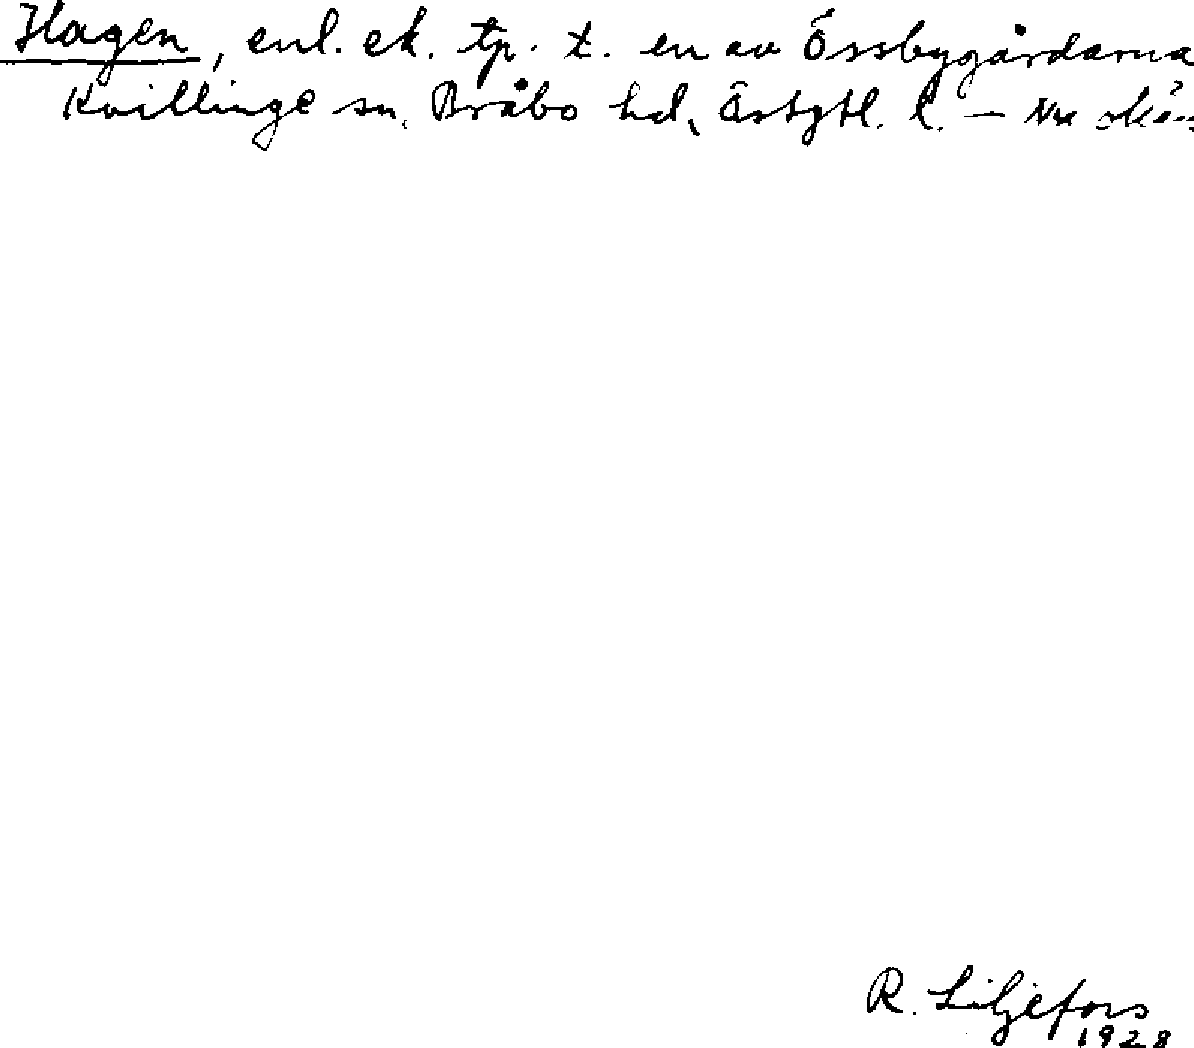 Hagen, enl. ek. tp. t. en av Össbygårdarna
Kvillinge sn, Bråbo hd, Östgtl. l. — Nu
R. Liljefors
1928